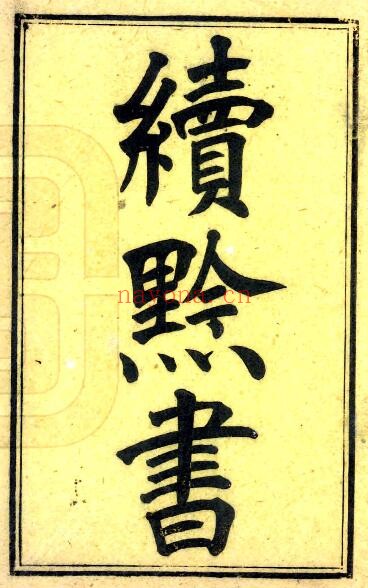 續黔書
nayona.cn